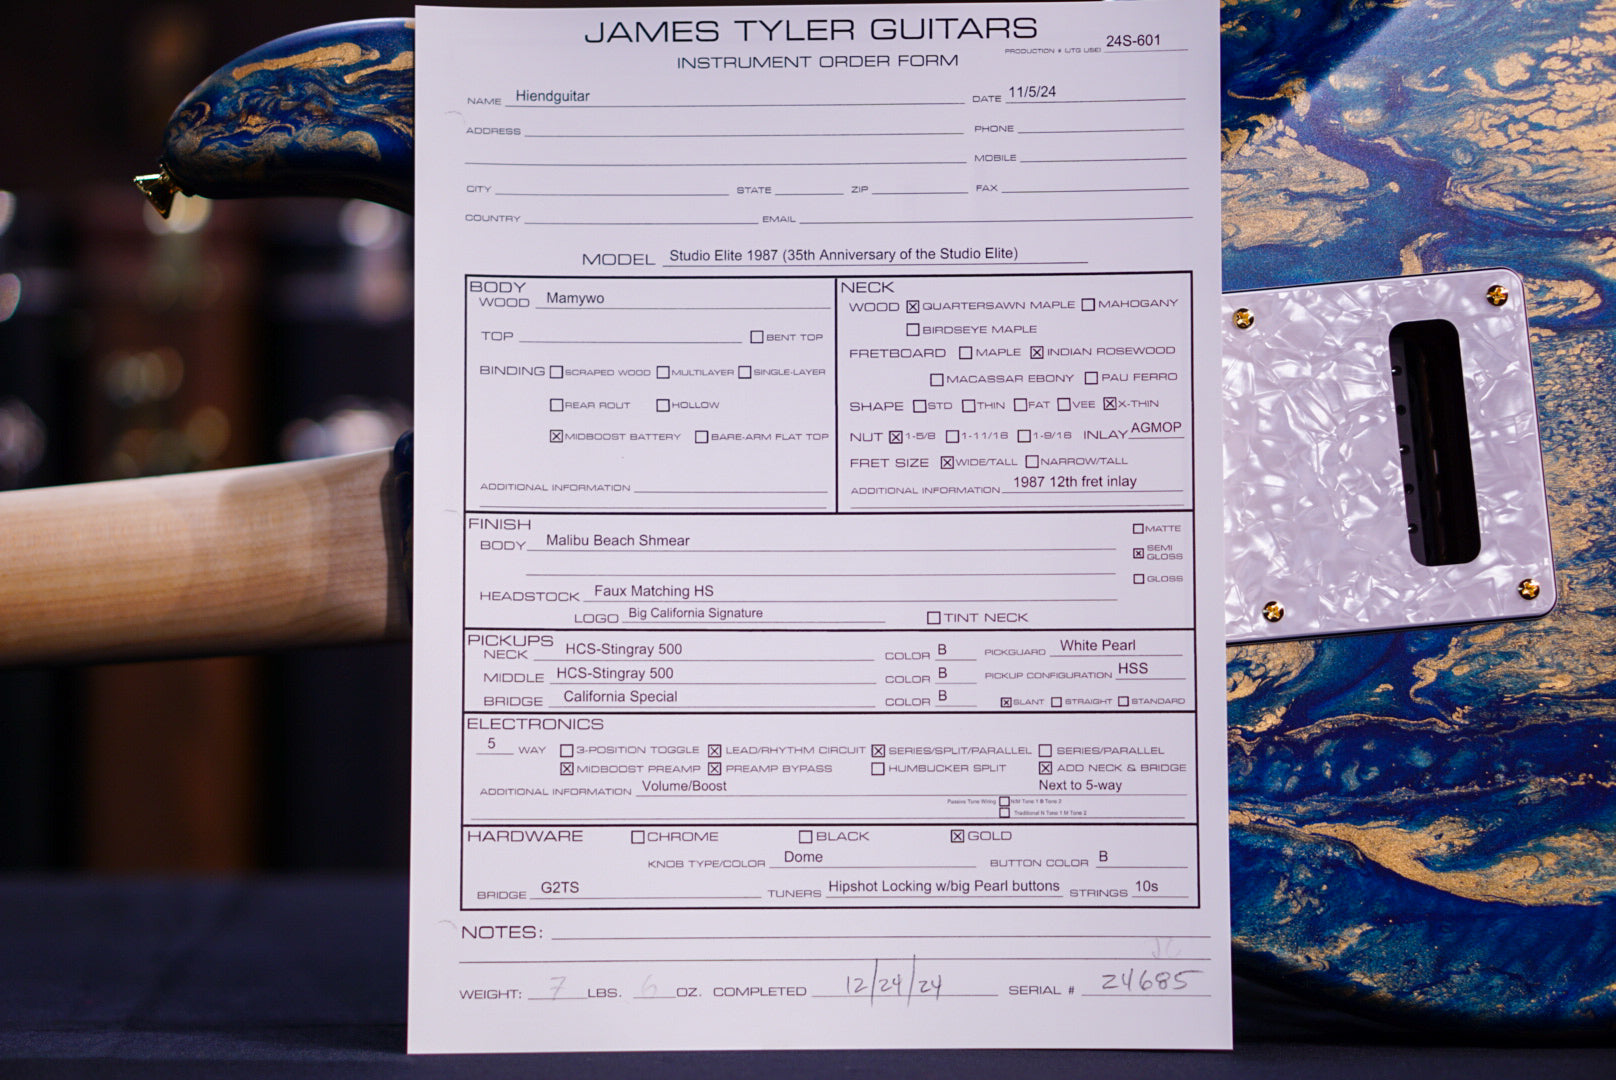 JAMES TYLER GUITARS
PRODUCTION # (JTG USE) 24S-601
INSTRUMENT ORDER FORM
NAME Hiendguitar DATE 11/5/24
ADDRESS PHONE
MOBILE
CITY STATE ZIP FAX
COUNTRY EMAIL
MODEL Studio Elite 1987 (35th Anniversary of the Studio Elite)
BODY
WOOD Mamywo
TOP ☐ BENT TOP
BINDING ☐ SCRAPED WOOD ☐ MULTILAYER ☐ SINGLE-LAYER
☐ REAR ROUT ☐ HOLLOW
☒ MIDBOOST BATTERY ☐ BARE-ARM FLAT TOP
ADDITIONAL INFORMATION
NECK
WOOD ☒ QUARTERSAWN MAPLE ☐ MAHOGANY
☐ BIRDSEYE MAPLE
FRETBOARD ☐ MAPLE ☒ INDIAN ROSEWOOD
☐ MACASSAR EBONY ☐ PAU FERRO
SHAPE ☐ STD ☐ THIN ☐ FAT ☐ VEE ☒ X-THIN
NUT ☒ 1-5/8 ☐ 1-11/16 ☐ 1-9/16 INLAY AGMOP
FRET SIZE ☒ WIDE/TALL ☐ NARROW/TALL
ADDITIONAL INFORMATION 1987 12th fret inlay
FINISH
BODY Malibu Beach Shmear
☐ MATTE
☒ SEMI GLOSS
☐ GLOSS
HEADSTOCK Faux Matching HS
LOGO Big California Signature ☐ TINT NECK
PICKUPS
NECK HCS-Stingray 500 COLOR B PICKGUARD White Pearl
MIDDLE HCS-Stingray 500 COLOR B PICKUP CONFIGURATION HSS
BRIDGE California Special COLOR B ☒ SLANT ☐ STRAIGHT ☐ STANDARD
ELECTRONICS
5 WAY ☐ 3-POSITION TOGGLE ☒ LEAD/RHYTHM CIRCUIT ☒ SERIES/SPLIT/PARALLEL ☐ SERIES/PARALLEL
☒ MIDBOOST PREAMP ☒ PREAMP BYPASS ☐ HUMBUCKER SPLIT ☒ ADD NECK & BRIDGE
ADDITIONAL INFORMATION Volume/Boost Next to 5-way
Passive Tone Wiring ☐ N/M Tone 1 B Tone 2
☐ Traditional N Tone 1 M Tone 2
HARDWARE ☐ CHROME ☐ BLACK ☒ GOLD
KNOB TYPE/COLOR Dome BUTTON COLOR B
BRIDGE G2TS TUNERS Hipshot Locking w/big Pearl buttons STRINGS 10s
NOTES:
WEIGHT: 7 LBS. 6 OZ. COMPLETED 12/24/24 SERIAL # 24685